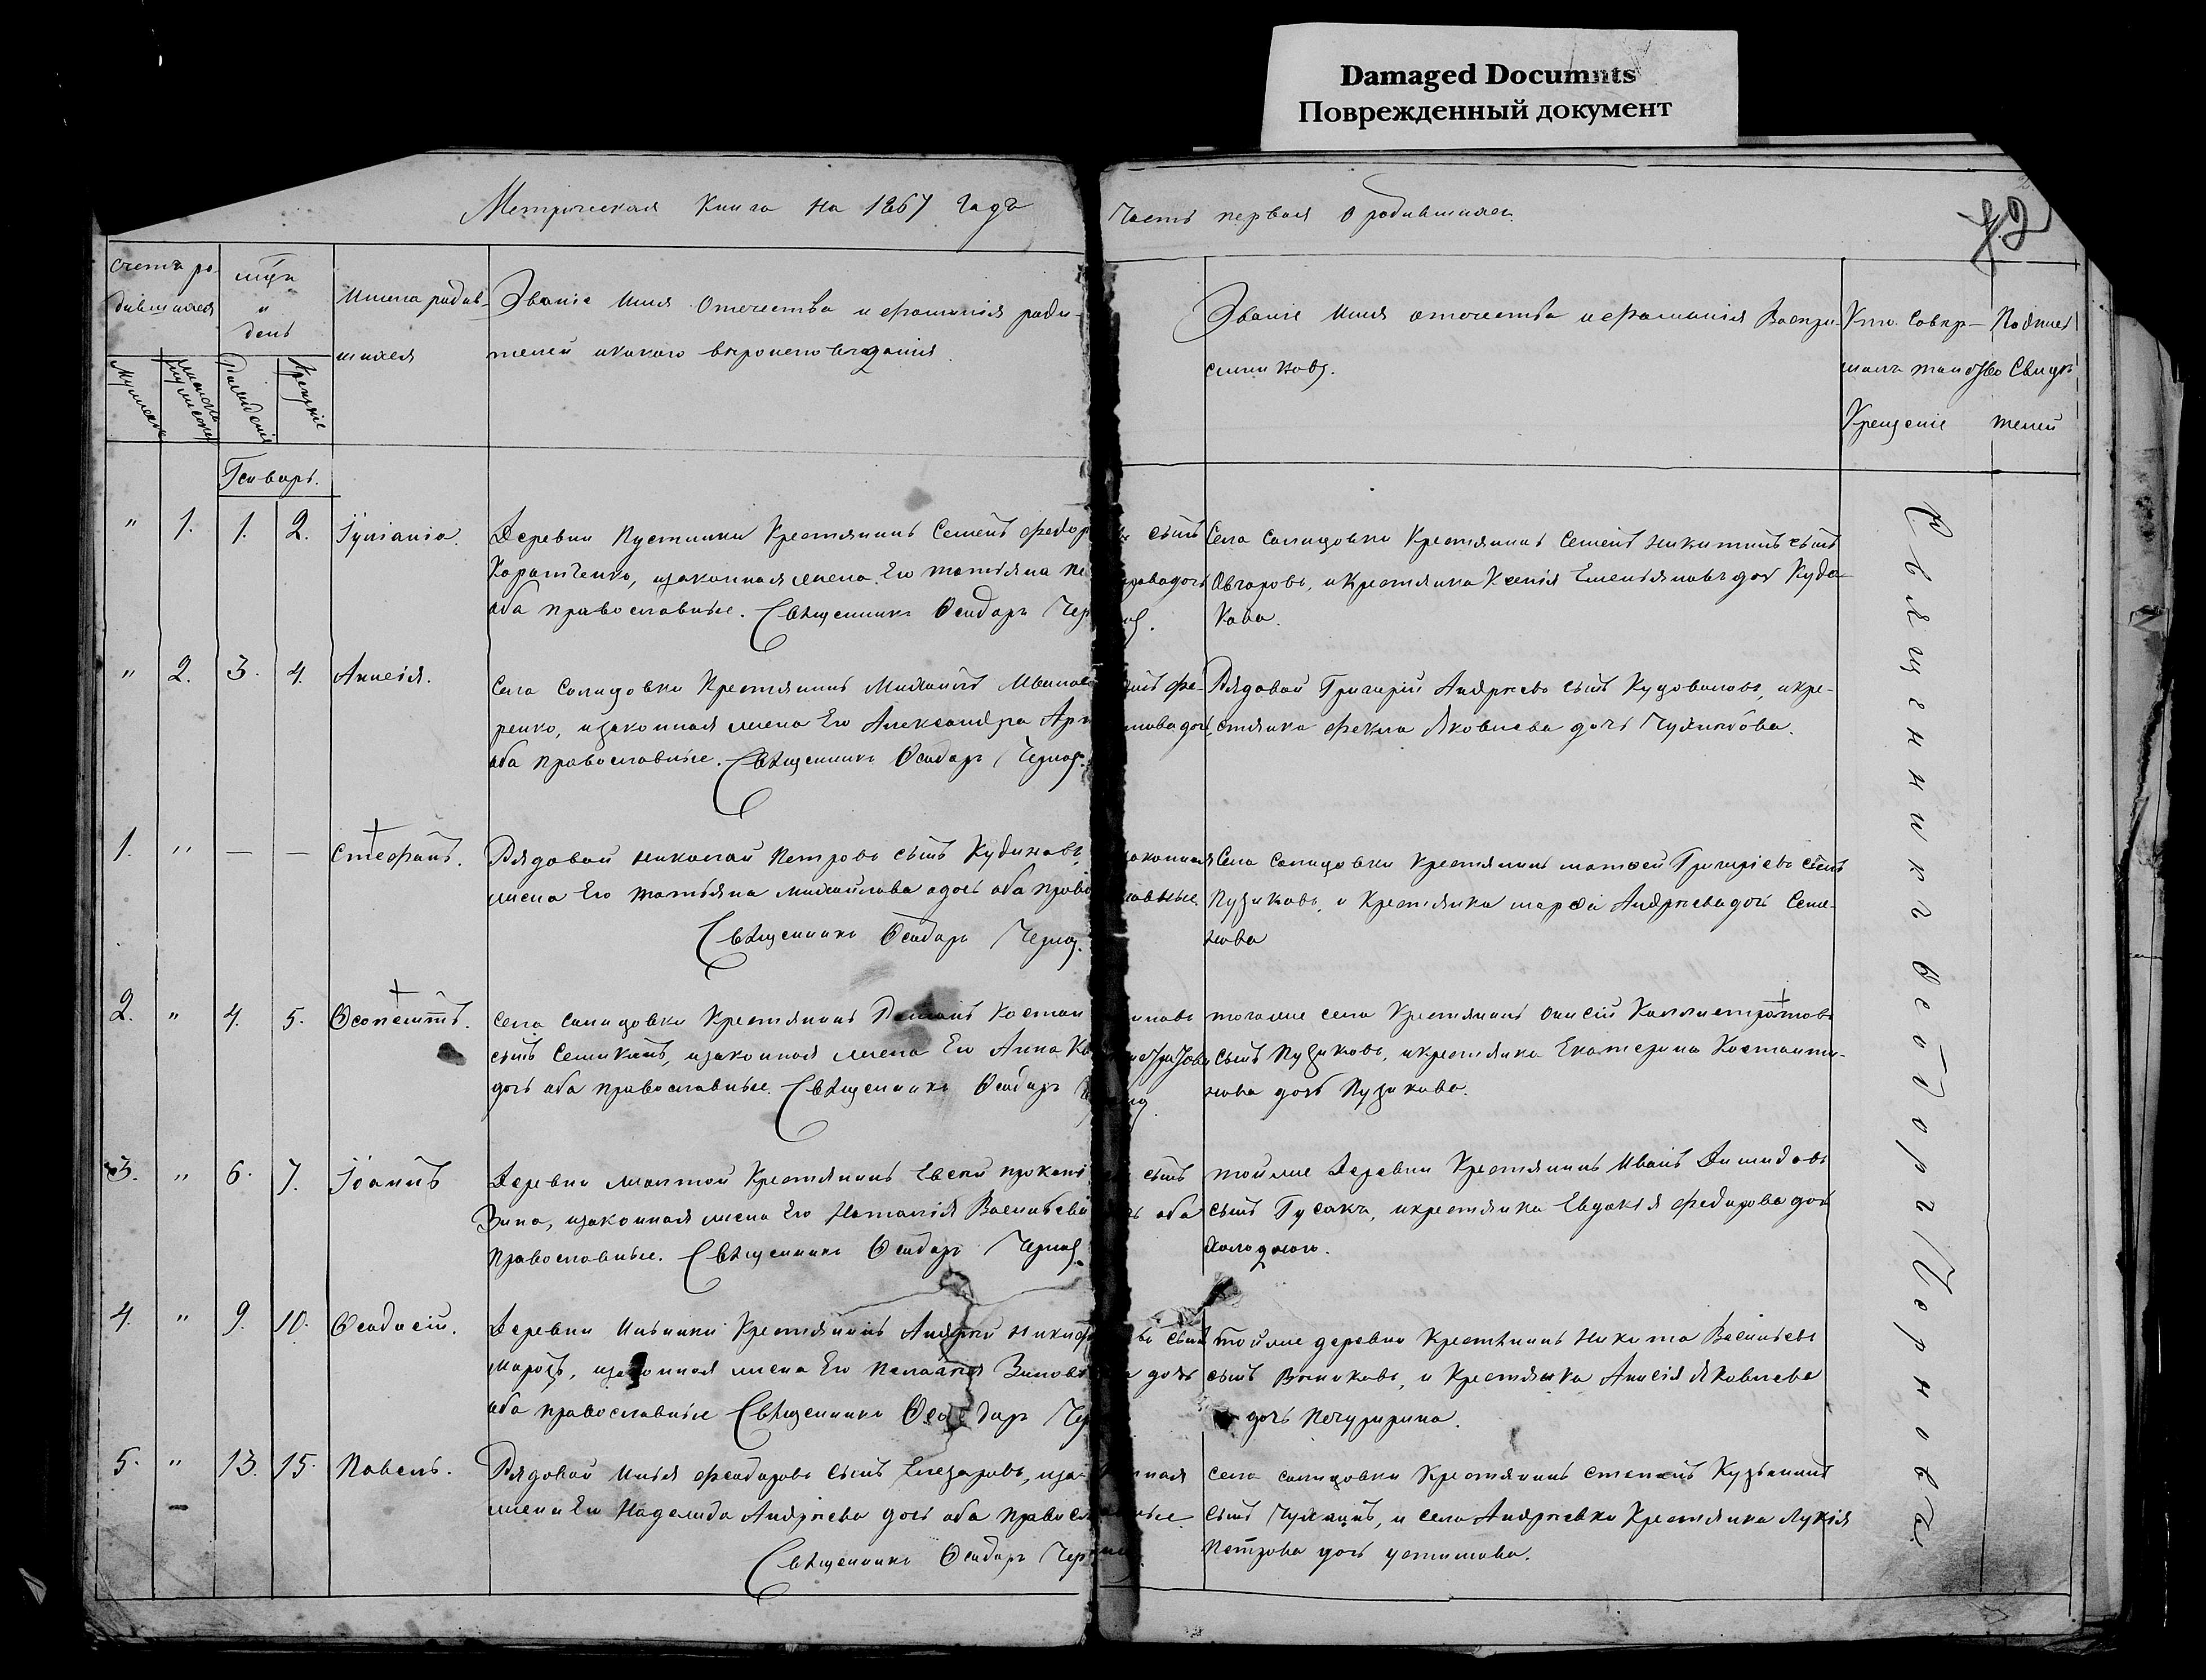 Damaged Documnts
Поврежденный документ
Метрическая Книга на 1867 годъ
Часть первая о родившихся.
42
Счетъ ро-
дившихся
мцъ
и
день
Имена родив-
шихся
Званіе Имя Отечество и фамилія роди-
телей и какого вѣроисповѣданія.
Званіе Имя отечество и фамилія Воспрі-
емниковъ.
Кто Совер-
шалъ таинство
Крещеніе
Подпись
Свидѣ-
телей
Рожденія
Крещенія
Генварь.
" 1. 1. 2. Іуліанія.
Деревни Пустынки Крестьянинъ Семенъ Федор
сынъ
Харитченко, изаконная жена Его Татьяна
оба православные. Священникъ Ѳеодоръ Чер
Села Солидовки Крестьянинъ Семенъ Никитинъ сынъ
Овчаровъ, и Крестьянка Ксенія Емельянова доч Куда-
кова.
" 2. 3. 4. Анисія.
Села Солидовки Крестьянинъ Михаилъ Иванов
ренко, изаконная жена Его Александра
оба православные. Священникъ Ѳеодоръ Чернов.
Рядовой Григорій Андреевъ сынъ Кудоваловъ, и кре-
стьянка Фекла Яковлева дочь
1. " — — Стефанъ.
Рядовой Николай Петровъ сынъ Кудиновъ,
жена Его Татьяна Михайлова дочь оба право
славные.
Священникъ Ѳеодоръ Чернов.
Села Солидовки Крестьянинъ Матѳей Григорьевъ сынъ
Пузиковъ, и Крестьянка Марѳа Андреева дочь Семе-
нова
2. " 4. 5. Ѳеопемптъ.
Села Солидовки Крестьянинъ Костан
тиновъ
сынъ Семикинъ, изаконная жена Его Анна
дочь оба православные. Священникъ Ѳеодоръ
тогоже села Крестьянинъ Каллистратовъ
сынъ Пузиковъ, и крестьянка Екатерина Костанти-
нова дочь Пузикова.
3. " 6. 7. Іоаннъ
Деревни Крестьянинъ Евсей
сынъ
Зина, изаконная жена Его Наталія Васильева
оба
православные. Священникъ Ѳеодоръ Чернов.
тойже Деревни Крестьянинъ Иванъ Димидовъ
сынъ Гусакъ, и крестьянка Евдокія Федорова дочь
Холодного.
4. " 9. 10. Ѳеодосій.
Деревни Ильинки Крестьянинъ Андрей Никиф
сынъ
Морозъ, изаконная жена Его Пелагія Зиновь
дочь
оба православные Священникъ Ѳеодоръ Чер
тойже деревни Крестьянинъ Никита Васильевъ
сынъ и Крестьянка Анисія Яковлева
дочь
5. " 13. 15. Павелъ.
Рядовой Илья Феодоровъ сынъ Елезаровъ, иза
конная
жена Его Надежда Андреева дочь оба правосл
Священникъ Ѳеодоръ Чернов
села Солидовки Крестьянинъ Степанъ Кузьминъ
сынъ и села Андреевки Крестьянка Лукія
Петрова дочь Устимова.
Священникъ Ѳеодоръ Черновъ.